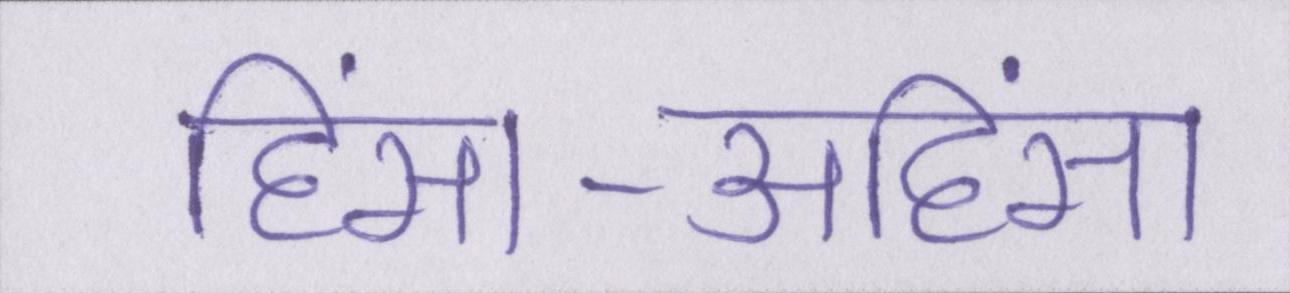 हिंसा-अहिंसा